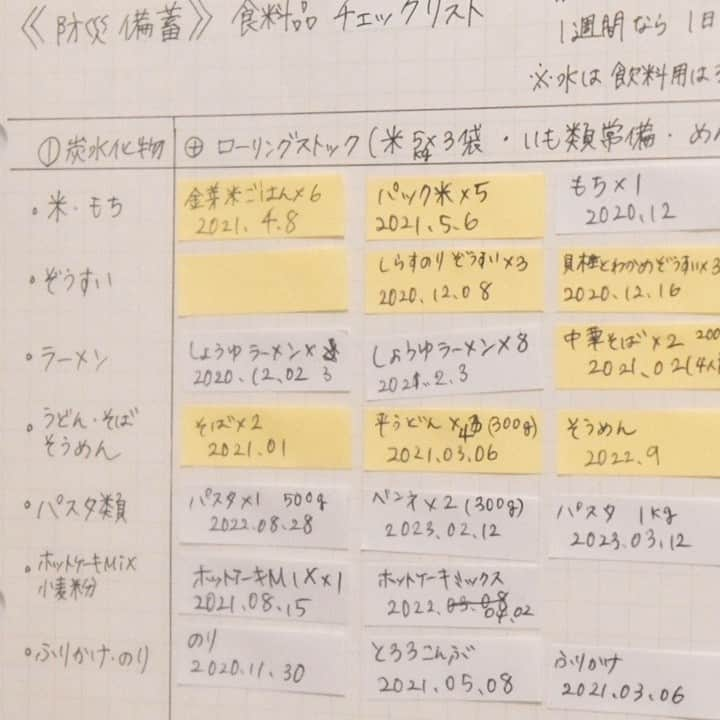 《防災備蓄》食料品 チェックリスト
1週間なら 1日
※水は 飲料用は
①炭水化物
⊕ ローリングストック(米5kg×3袋・いも類常備・めん
・米・もち
金芽米ごはん×6
2021.4.8
パック米×5
2021.5.6
もち×1
2020.12
・ぞうすい
しらすのり ぞうすい×3
2020.12.08
貝柱とわかめぞうすい×3
2020.12.16
・ラーメン
しょうゆラーメン×
2020.12.02 3
しょうゆラーメン×8
2021.2.3
中華そば×2 200
2021.02(4人
・うどん・そば
そうめん
そば×2
2021.01
平うどん ×4 (300g)
2021.03.06
そうめん
2022.9
・パスタ類
パスタ×1 500g
2022.08.28
ペンネ×2(300g)
2023.02.12
パスタ 1kg
2023.03.12
・ホットケーキMix
小麦粉
ホットケーキMIX×1
2021.08.15
ホットケーキミックス
2022.03.08
04.02
・ふりかけ・のり
のり
2020.11.30
とろろこんぶ
2021.05.08
ふりかけ
2021.03.06